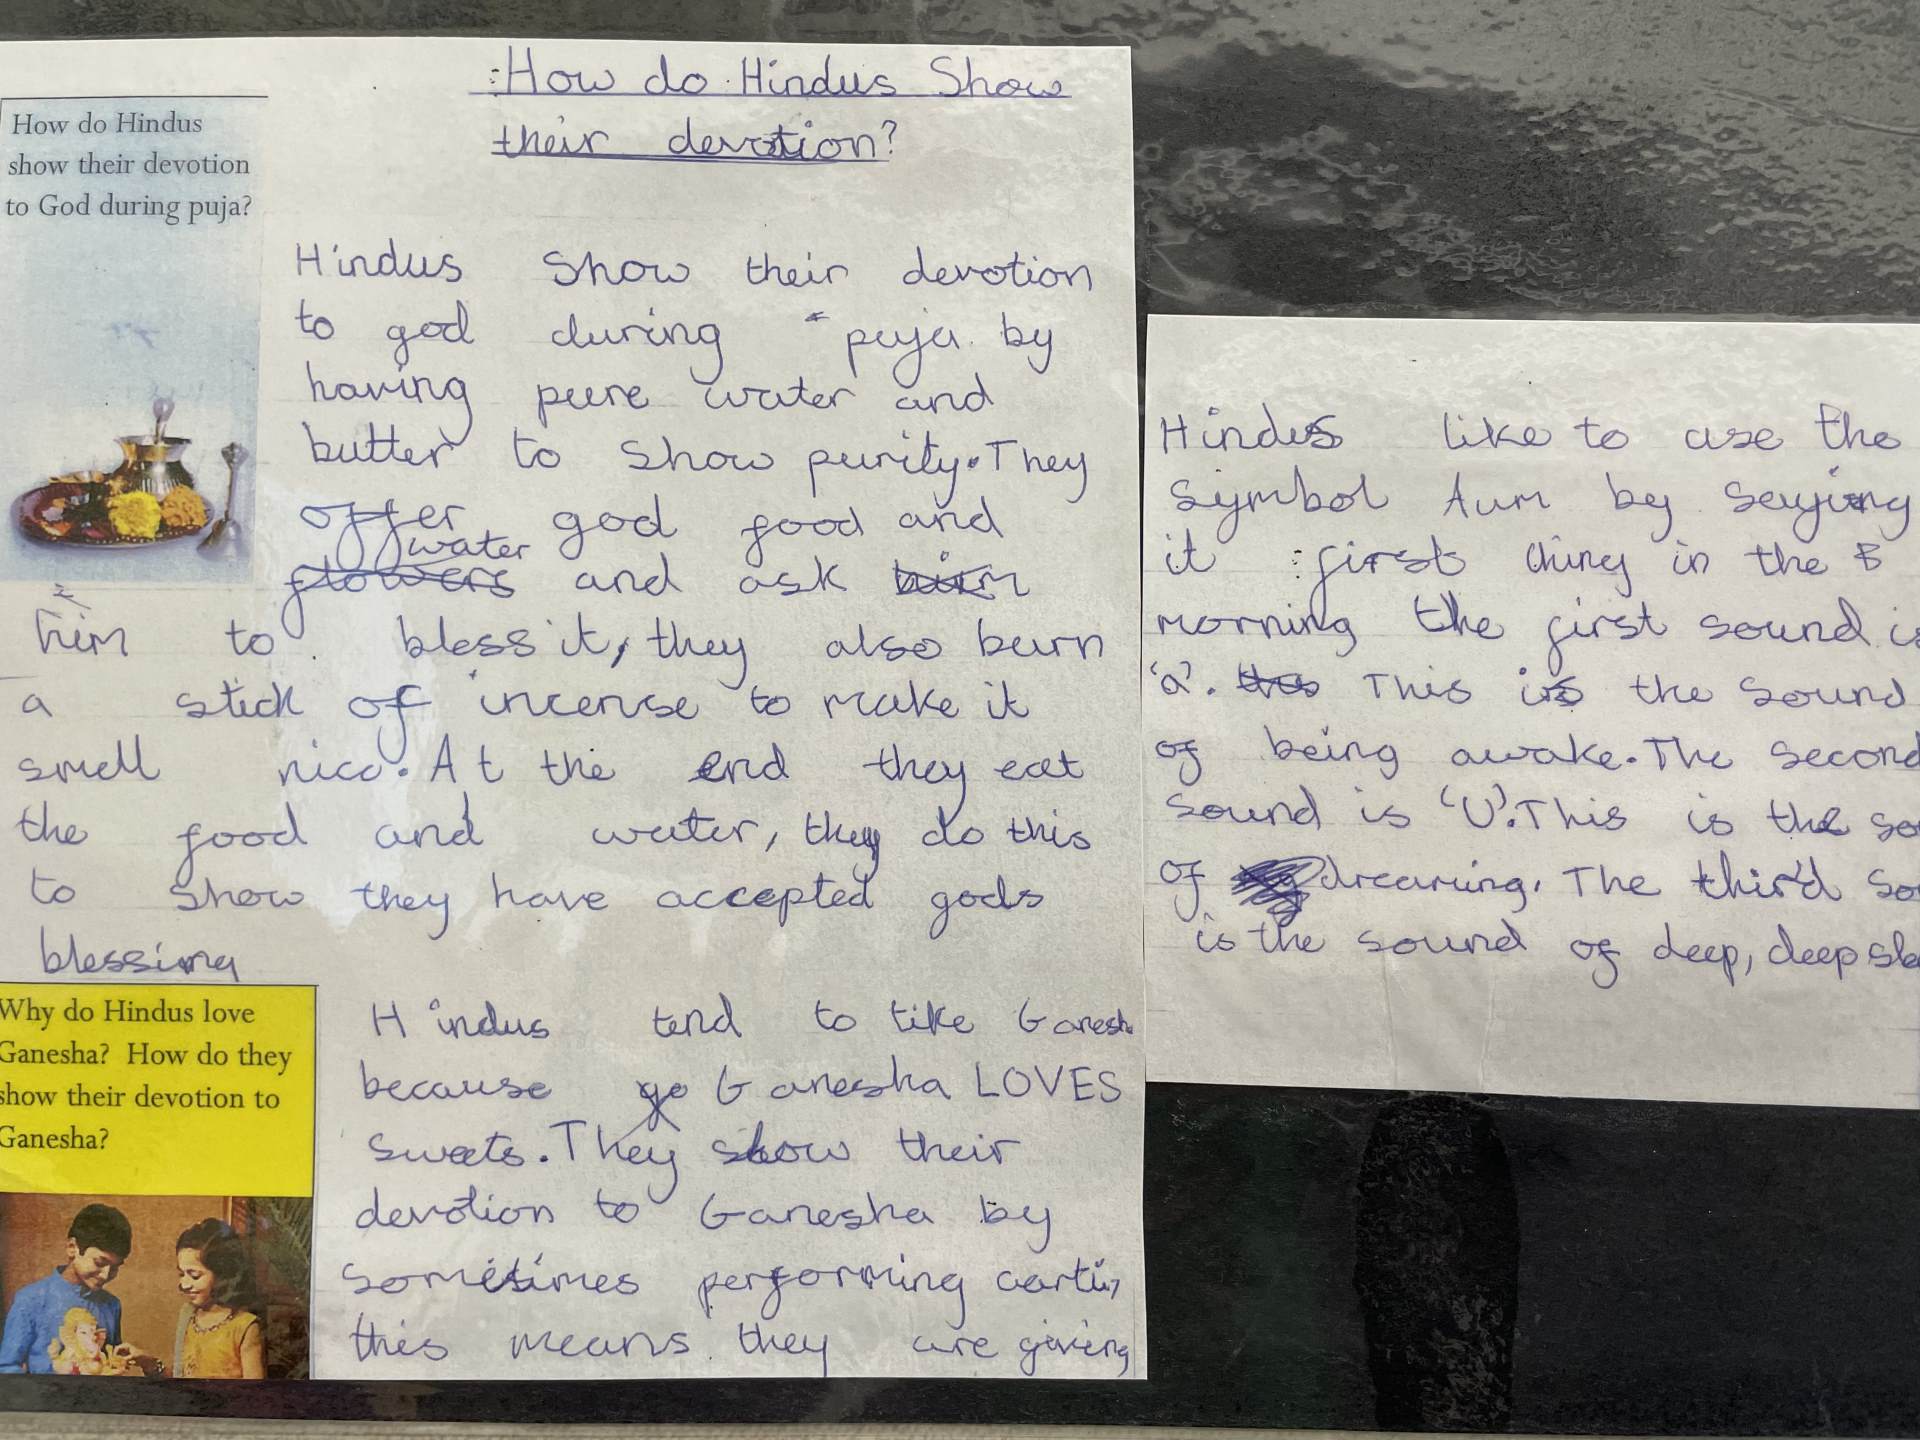 How do Hindus Show
their devotion?
How do Hindus
show their devotion
to God during puja?
Hindus show their devotion
to god during puja by
having pure water and
butter to show purity. They
offer god food and
water
flowers and ask him
him to bless it, they also burn
a stick of incense to make it
smell nice. At the end they eat
the food and water, they do this
to show they have accepted gods
blessing
Why do Hindus love
Ganesha? How do they
show their devotion to
Ganesha?
Hindus tend to like Ganesh
because go Ganesha LOVES
sweets. They show their
devotion to Ganesha by
sometimes performing aarti,
this means they are giving
Hindus like to use the
symbol Aum by saying
it first thing in the B
morning the first sound is
'a'. this This is the sound
of being awake. The second
sound is 'U'. This is the so
of dreaming. The third so
is the sound of deep, deep sle